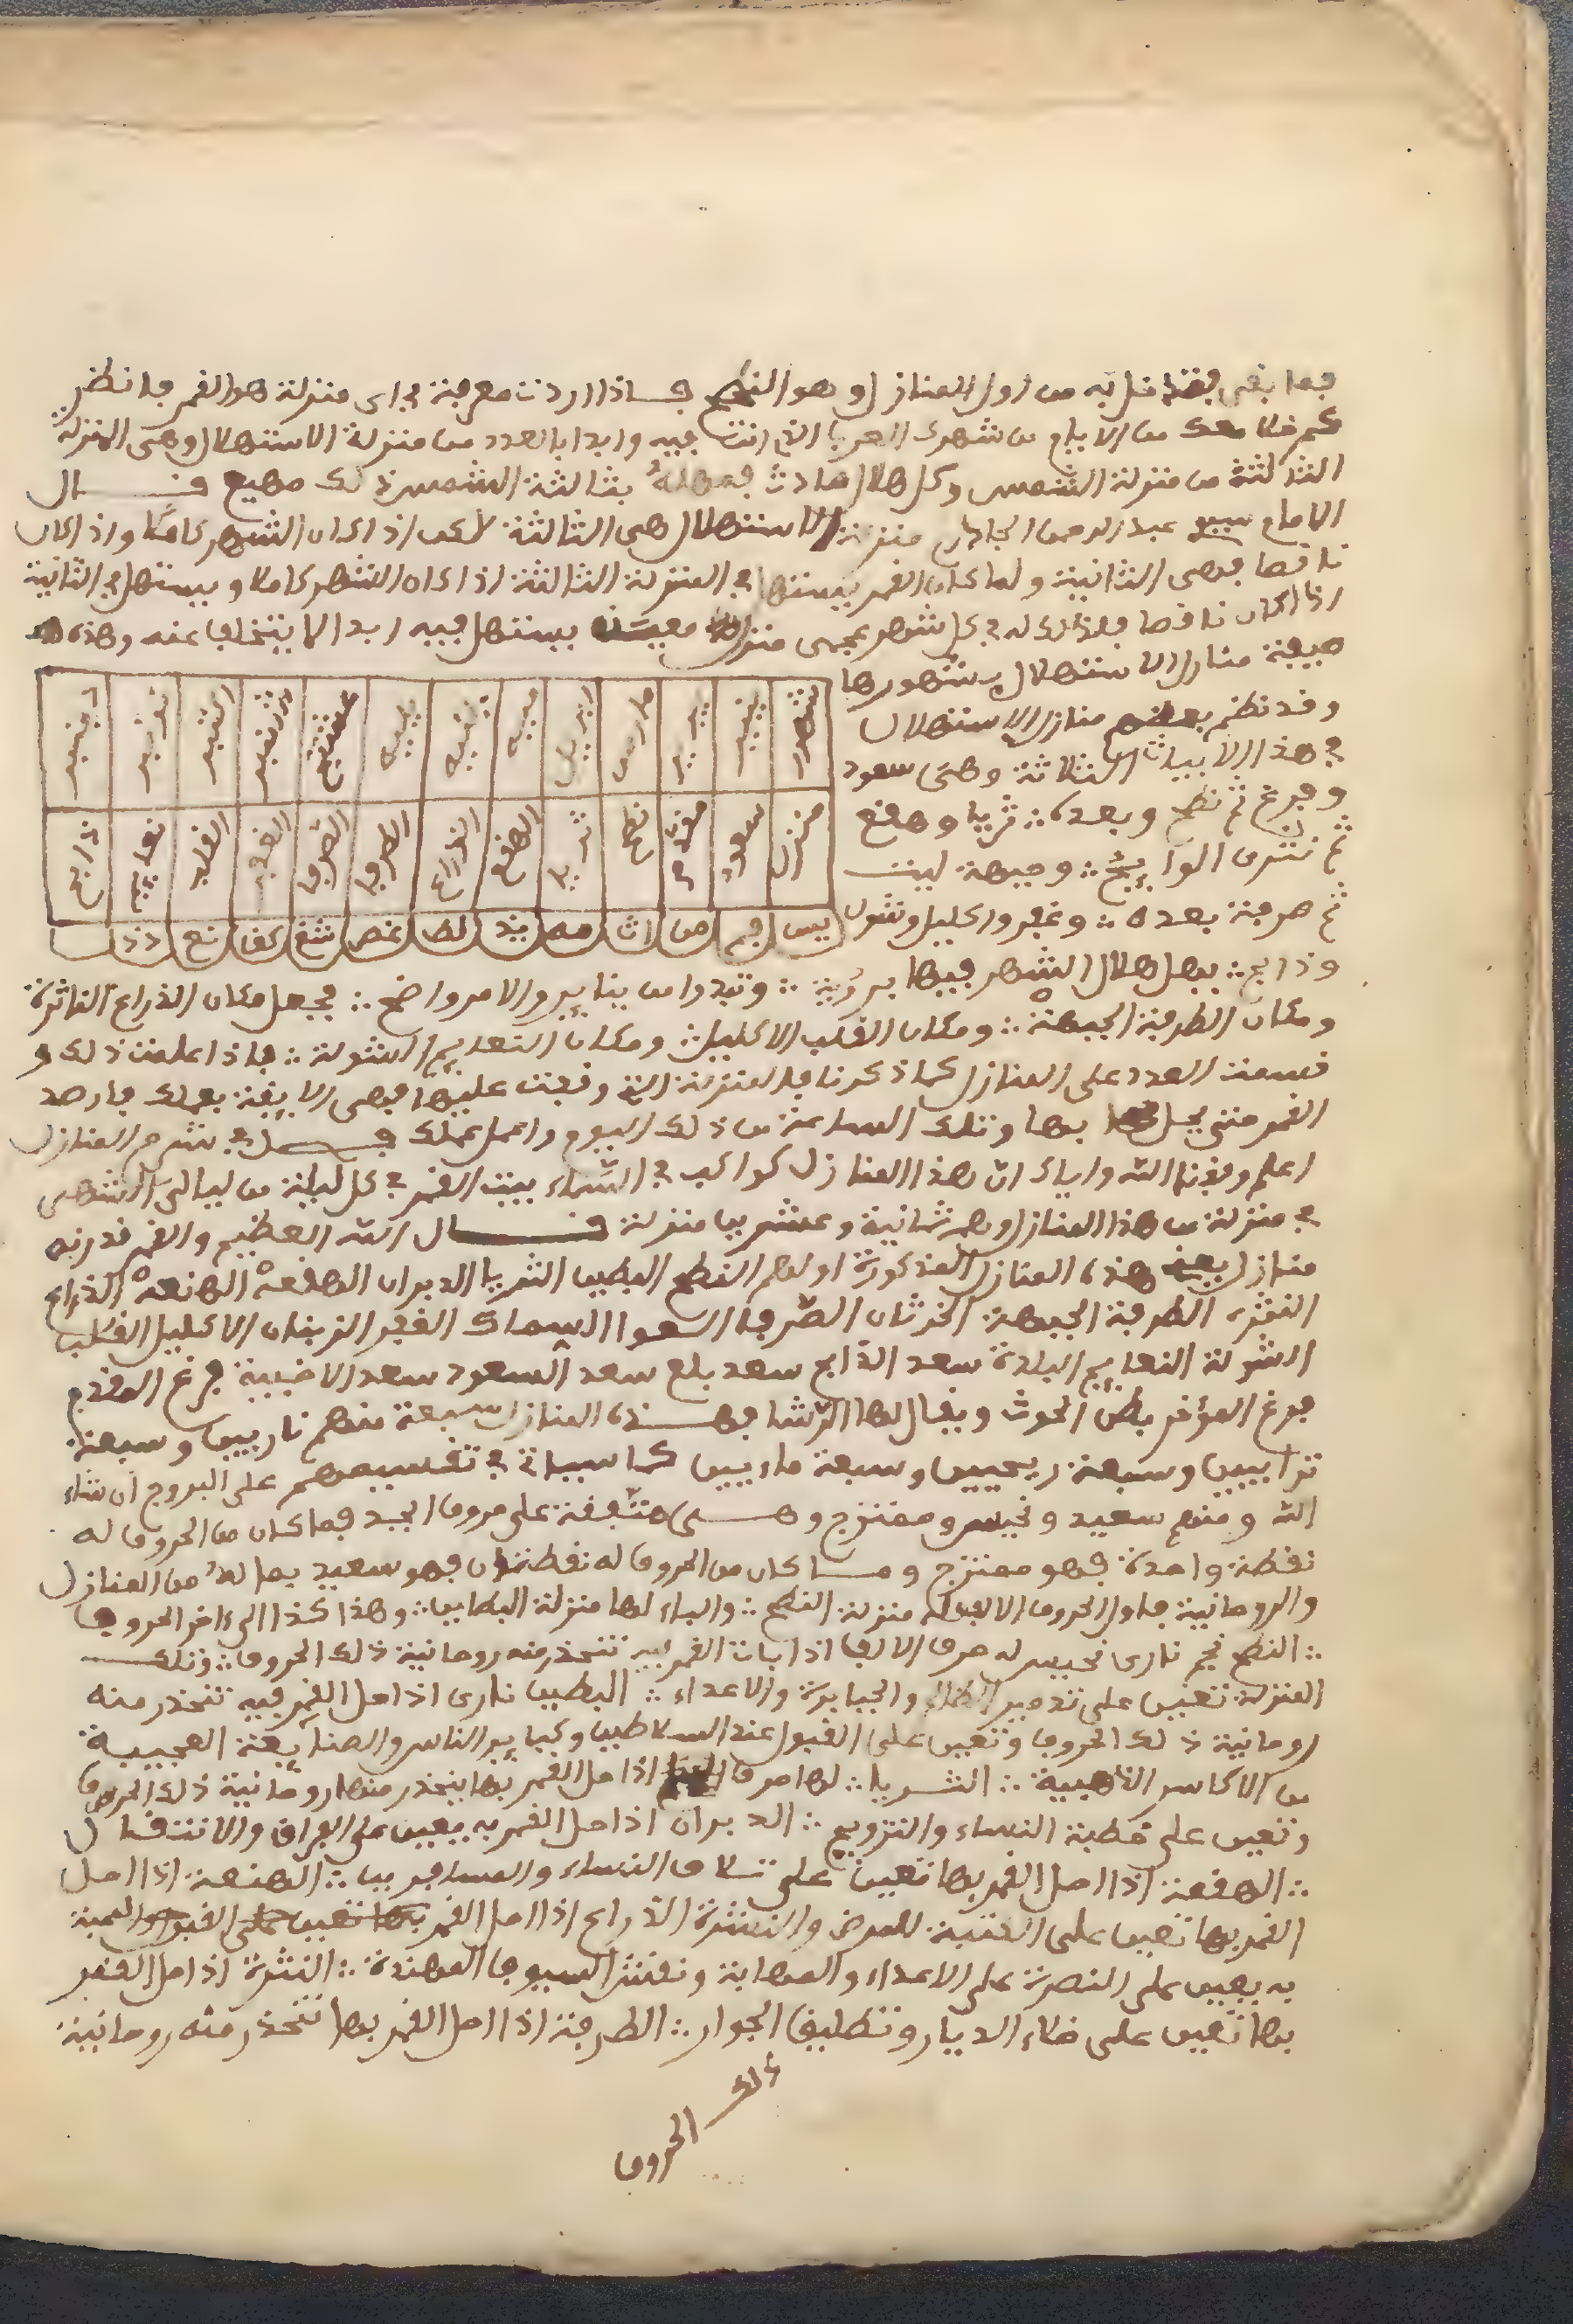 فما بقى فقابل به من اول المنازل وهو النطح فاذا اردت معرفة في اى منزلة هو القمر فانظر
كم خلا معك من الايام من شهرك العربي الذي انت فيه وابدا بالعدد من منزلة الاستهلال وهى المنزلة
الثالثة من منزلة الشمس وكل هلال حادث فمهله بثالثة الشمس ذلك مهيع قال
الامام سيدي عبد الرحمن الجادري منزلة الاستهلال هى الثالثة لاكن اذا كان الشهر كاملا واذا كان
ناقصا فهى الثانية ولما كان القمر يستهل في المنزلة الثالثة اذا كان الشهر كاملا ويستهل في الثانية
اذا كان ناقصا فلذلك له في كل شهر عجمى منزلة معينة يستهل فيه ابدا لا يتخلف عنه وهذه
صيفة منازل الاستهلال بشهورها
وقد نظم بعضهم منازل الاستهلال
في هذا الابيات الثلاثة وهى سعود
وفرغ ثم نطح وبعده ∴ ثريا وهقع
ثم نثرى اللوايح ∴ وجبهة ليث
ثم صرفة بعده ∴ وغفر واكليل وشول
شهور ينير يبرير مارس ابريل ميه ينيه يليه غشت شتنبر اكتبر نونبر دجنبر
منزل سعود مقدم نطح ثريا الهقع الذراع الطرف الصرف الغفر القلب نعايم ذابح
وذابح ∴ يهل هلال الشهر فيها برؤية ∴ وتبدوا من يناير والامر واضح ∴ فجعل مكان الذراع الناثرة
ومكان الطرفة الجبهة ∴ ومكان القلب الاكليل ∴ ومكان النعايم الشولة ∴ فاذا علمت ذلك و
قسمت العدد على المنازل كما ذكرنا فالمنزلة التي وقفت عليها فهى الايقة بعملك فارصد
القمر متى يحل بها وتلك الساعة من ذلك اليوم واعمل عملك فصل في شرح المنازل
اعلم وفقنا الله واياك ان هذا المنازل كواكب في السماء يبيت القمر في كل ليلة من ليالى الشهر
في منزلة من هذا المنازل وهم ثمانية وعشرين منزلة قال الله العظيم والقمر قدرنه
منازل يعنى هذه المنازل المذكورة اولهم النطح البطين الثريا الدبران الهقعة الهنعة الذراع
النثرة الطرفة الجبهة الخرثان الصرفا العوا السماك الغفر الزبنان الاكليل القلب
الشولة النعايم البلدة سعد الذابح سعد بلع سعد السعود سعد الاخبية فرغ المقدم
فرغ المؤخر بطن الحوث ويقال لها الرشا فهذه المنازل سبعة منهم ناريين وسبعة
ترابيين وسبعة ريحيين وسبعة مايين كما سياتى في تقسيمهم على البروج ان شاء
الله ومنهم سعيد ونحيس وممتزج وهى متفقة على حروف ابجد فما كان من الحروف له
نقطة واحدة فهو ممتزج وما كان من الحروف له نقطتان فهو سعيد بما له من المنازل
والروحانية فاول الحروف الالف له منزلة النطح ∴ والباء لها منزلة البطين ∴ وهذا كذا الى ءاخر الحروف
∴ النطح نجم نارى نحيس له حرف الالف اذا بات القمر به تنحذر منه روحانية ذلك الحروف ∴ وتلك
المنزلة تعين على تدمير والجبابرة والاعداء ∴ البطين نارى اذا حل القمر فيه تنحذر منه
روحانية ذلك الحروف وتعين على القبول عند السلاطين وكباير الناس والصنايعة العجيبة
من الاكاسر الذهبية ∴ الثريا ∴ لها حرف الجيم اذا حل القمر بها ينحذر منها روحانية ذلك الحروف
وتعين على خطبة النساء والتزويج ∴ الدبران اذا حل القمر به يعين على الفراق والانتقال
∴ الهقعة اذا حل القمر بها تعين على تلاف النساء والمسافرين ∴ الهنعة اذا حل
القمر بها تعين على المرض والنشرة الذراع اذا حل القمر بها تعين على القبول والمحبة
به يعين على النصرة على الاعداء والمهابة ونقش السيوف المهندة ∴ النثرة اذا حل القمر
بها تعين على خلاء الديار وتطليق الجوار ∴ الطرفة اذا حل القمر بها تنحذر منه روحانية
ذلك
الحروف